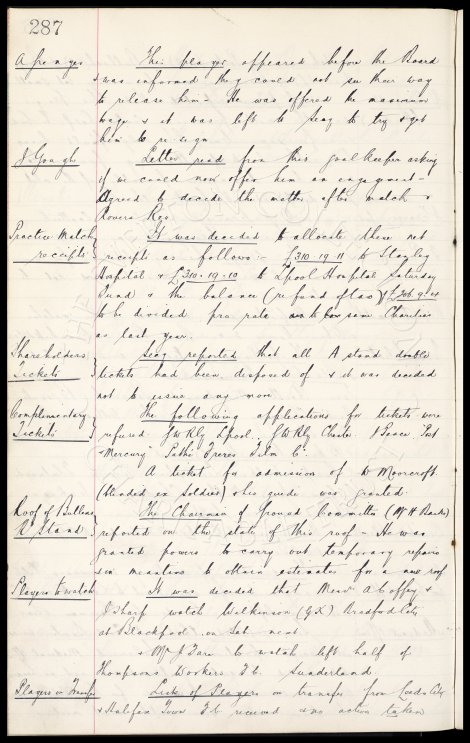 287
A Grenyer This player appeared before the Board
& was informed they could not see their way
to release him – He was offered the maximum
wage & it was left to Secy to try & get
him to re sign
J Gough Letter read from this goal keeper asking
if we could now offer him an engagement –
Agreed to decide the matter after match v
Rovers Res.
Practice Match It was decided to allocate these net
receipts receipts as follows:– £310·19·11 to Stanley
Hospital & £310·19·10 to L'pool Hospital Saturday
Fund & the balance (refund of tax)
to be divided pro rata same Charities
as last year.
Shareholders Secy reported that all A stand double
Tickets tickets had been disposed of & it was decided
not to issue any more
Complimentary The following applications for tickets were
Tickets refused. G W Rly L'pool, G W Rly Chester. Post
& Mercury Pathé Freres Film Co.
A ticket for admission of W Moorcroft
(blinded ex soldier) & his guide was granted.
Roof of Bullens The Chairman of Ground Committee (W H Banks)
Rd Stand reported on the state of this roof – He was
granted powers to carry out temporary repairs
& in meantime to obtain estimates for a new roof
Players to watch It was decided that Messrs A Coffey &
J Sharp watch Wilkinson (G.K.) Bradford City
at Blackpool on Sat. next
& Mr J Fare to watch left half of
Thompsons Workers F.C. Sunderland
Players on Transfer Lists of Players on transfer from Leeds City
& Halifax Town F.C. received & no action taken